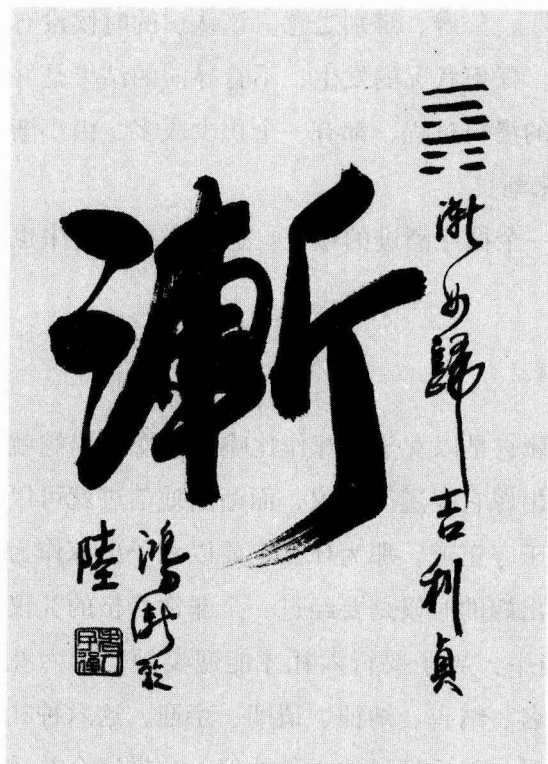 漸女歸吉利貞
漸
鴻漸於
陸